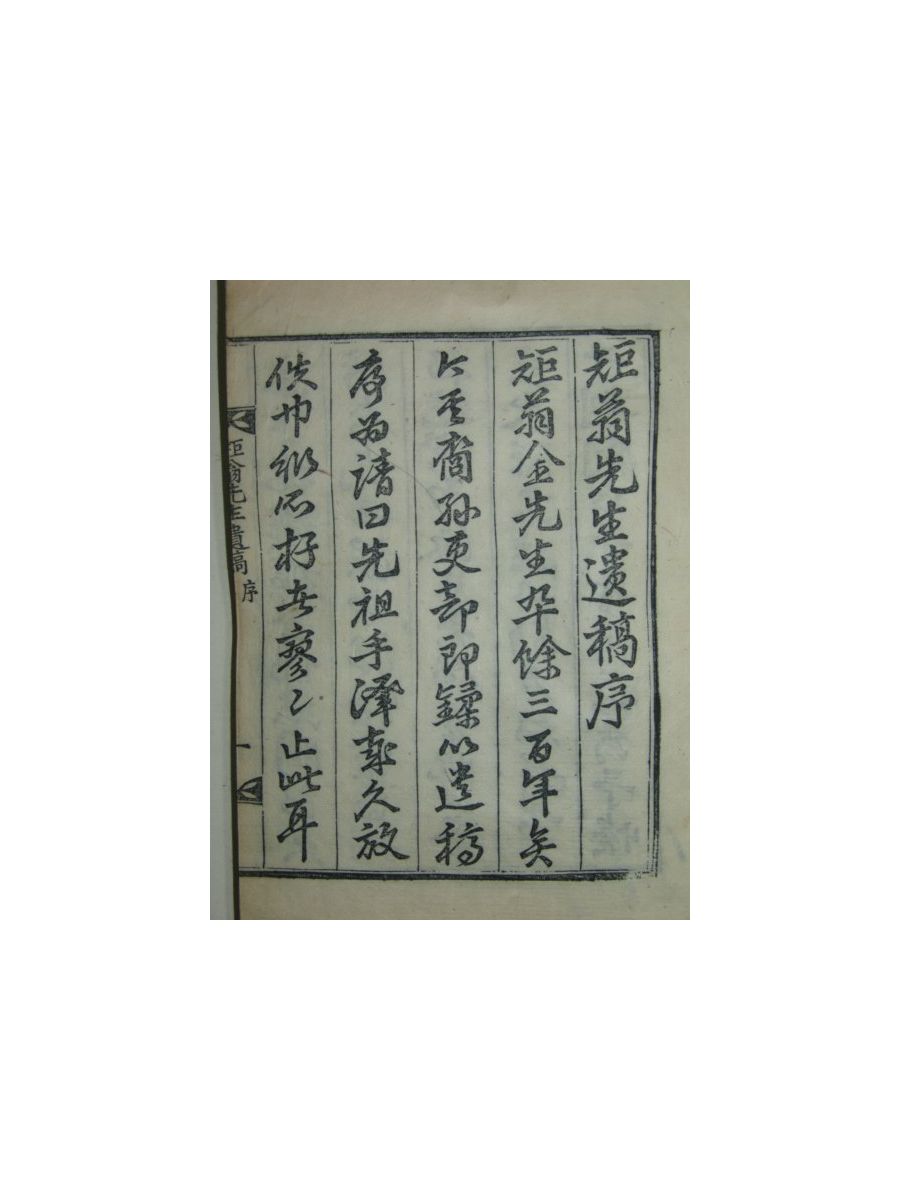 矩翁先生遺稿序
矩翁金先生卒餘三百年矣
今其裔孫更却即鐰以遺稿
序為請曰先祖手澤歲久放
佚巾衍所存者寥〻止此耳
矩翁先生遺稿 序 一